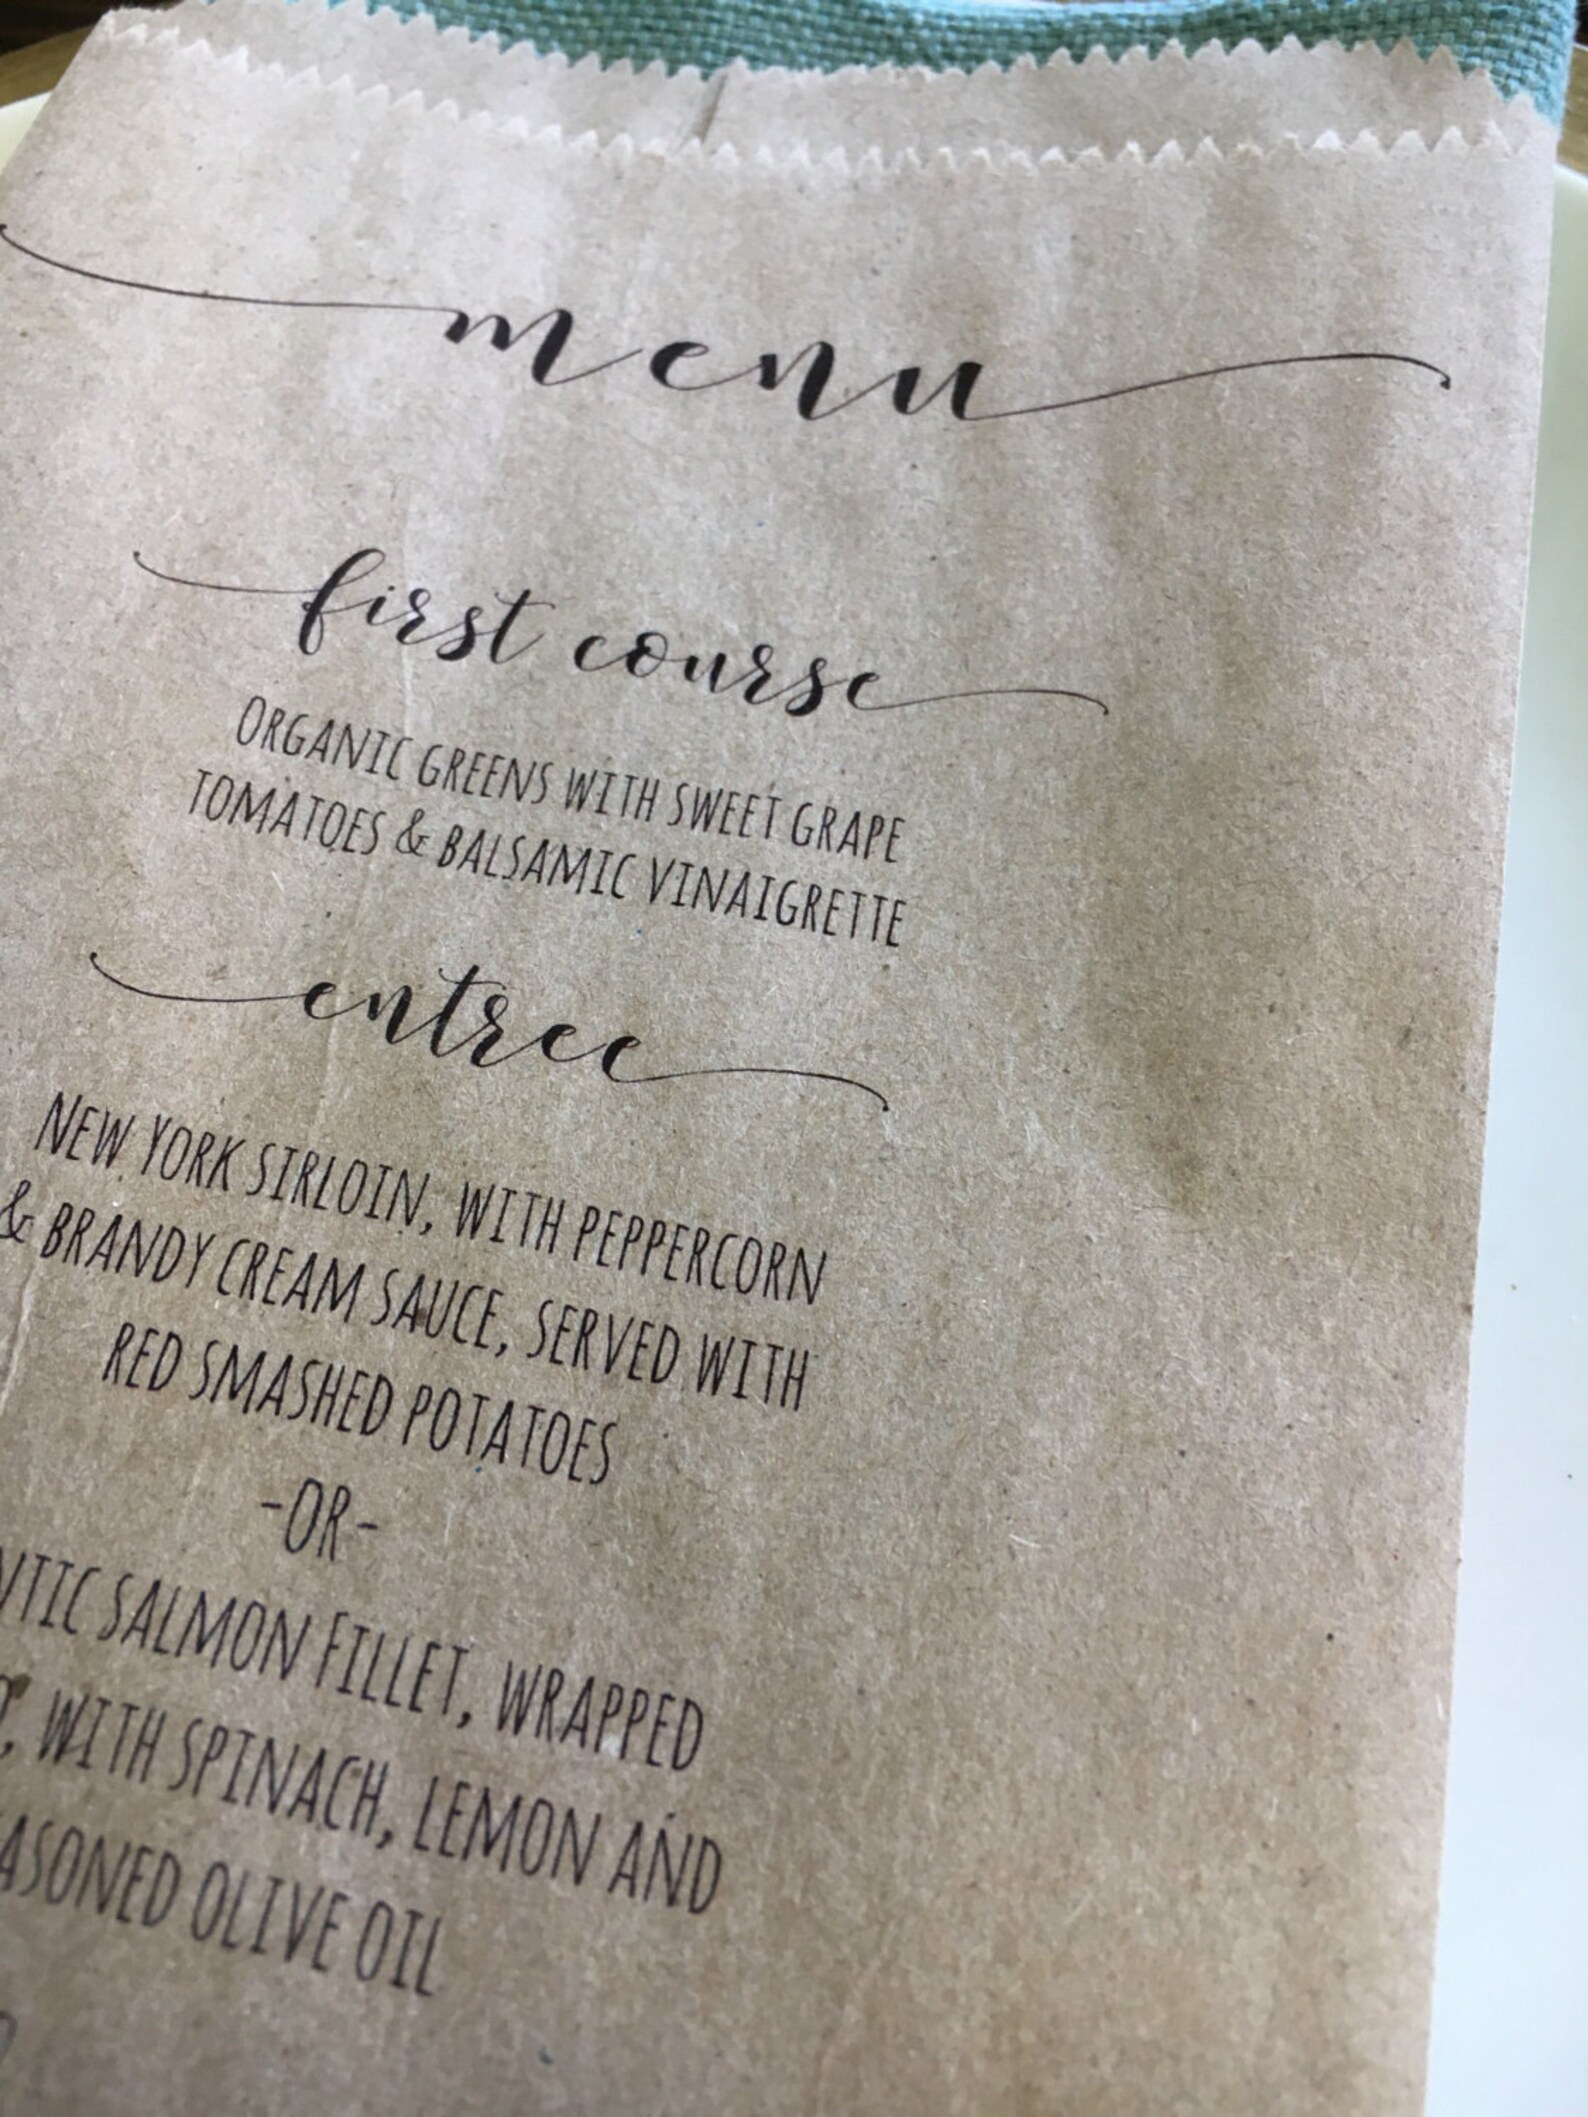 menu
first course
ORGANIC GREENS WITH SWEET GRAPE
TOMATOES & BALSAMIC VINAIGRETTE
entree
NEW YORK SIRLOIN, WITH PEPPERCORN
& BRANDY CREAM SAUCE, SERVED WITH
RED SMASHED POTATOES
-OR-
SALMON FILLET, WRAPPED
, WITH SPINACH, LEMON AND
OLIVE OIL